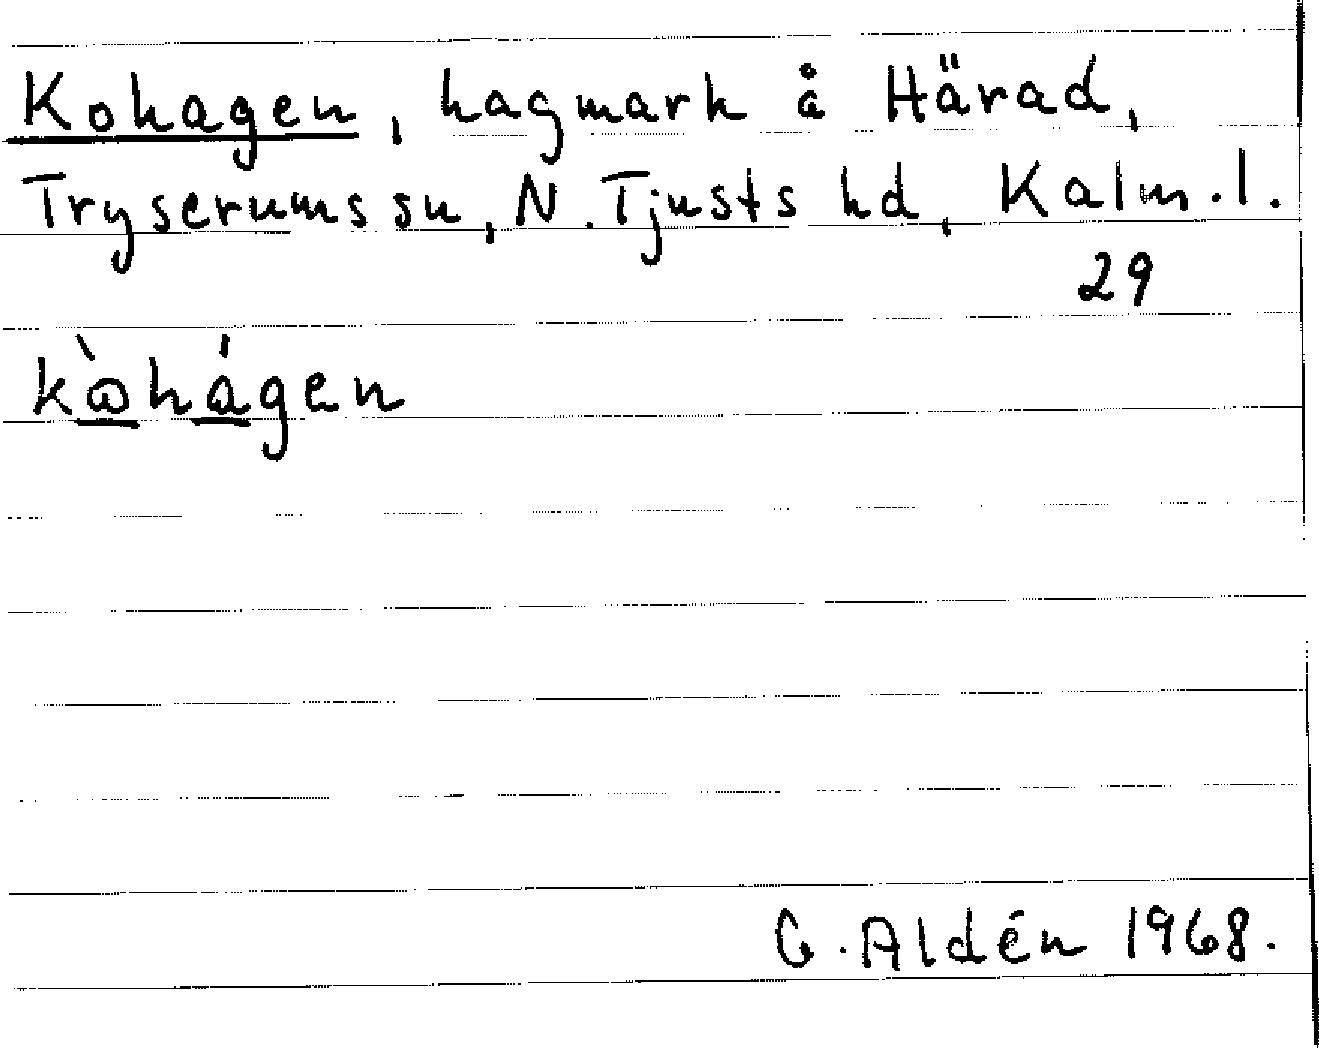 Kohagen, hagmark å Härad,
Tryserums sn, N. Tjusts hd, Kalm. l.
29
kὼhágen
G. Aldén 1968.